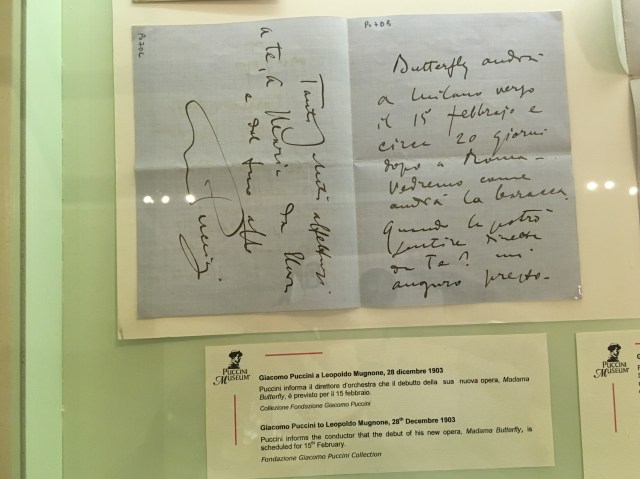 Pu 70c
Pu 70B
Tanti saluti affettuosi
a te, a Maria da Elvira
e dal tuo aff.
G. Puccini
Butterfly andrà
a Milano verso
il 15 febbrajo e
circa 20 giorni
dopo a Roma –
Vedremo come
andrà la baracca.
Quando la potrò
sentire diretta
da Te? mi
auguro presto –
PUCCINI
MUSEUM
Giacomo Puccini a Leopoldo Mugnone, 28 dicembre 1903
Puccini informa il direttore d'orchestra che il debutto della sua nuova opera, Madama
Butterfly, è previsto per il 15 febbraio.
Collezione Fondazione Giacomo Puccini
Giacomo Puccini to Leopoldo Mugnone, 28th Decembre 1903
Puccini informs the conductor that the debut of his new opera, Madama Butterfly, is
scheduled for 15th February.
Fondazione Giacomo Puccini Collection
PUCCINI
MUSEUM